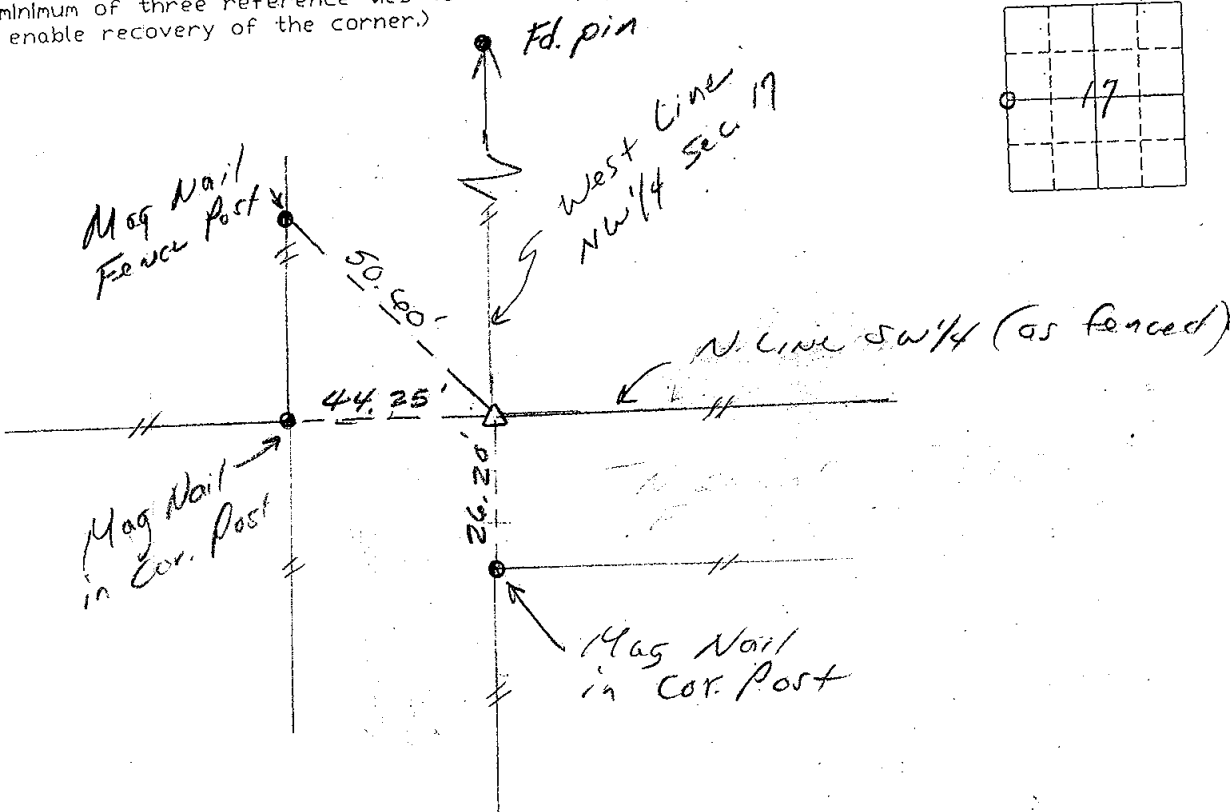 minimum of three reference
enable recovery of the corner.)
Fd. pin
17
West Line
NW 1/4 Sec. 17
Mag Nail
Fence Post
50.60
N. Line SW 1/4 (as fenced)
44.25'
26.20'
Mag Nail
in Cor. Post
Mag Nail
in Cor. Post